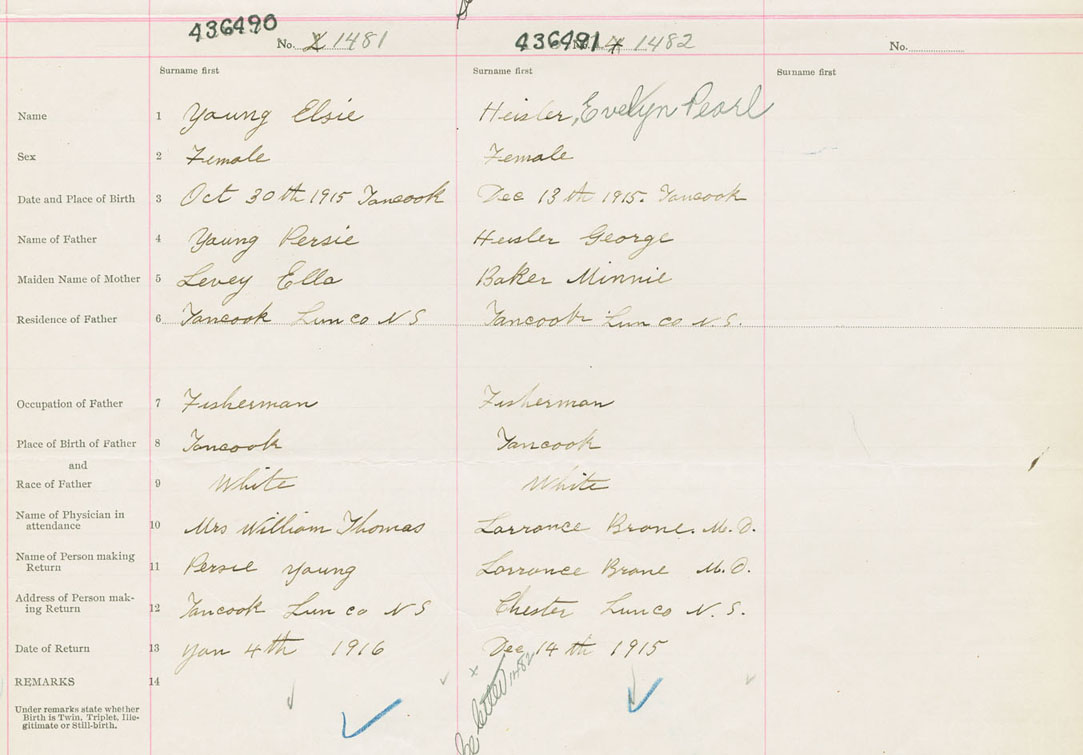 436490
No. 1481
436491
No. 1482
No.
Surname first
Surname first
Surname first
Name 1 Young Elsie Heisler, Evelyn Pearl
Sex 2 Female Female
Date and Place of Birth 3 Oct 30th 1915 Tancook Dec 13th 1915. Tancook
Name of Father 4 Young Persie Heisler George
Maiden Name of Mother 5 Levey Ella Baker Minnie
Residence of Father 6 Tancook Lun co N S Tancook Lun co N.S.
Occupation of Father 7 Fisherman Fisherman
Place of Birth of Father 8 Tancook Tancook
and
Race of Father 9 White White
Name of Physician in
attendance 10 Mrs William Thomas Lorrance Brone. M.D.
Name of Person making
Return 11 Persie Young Lorrance Brone M.D.
Address of Person mak-
ing Return 12 Tancook Lun co N S Chester Lun co N.S.
Date of Return 13 Jan 4th 1916 Dec 14th 1915
REMARKS 14
Under remarks state whether
Birth is Twin, Triplet, Ille-
gitimate or Still-birth.
letter 1482